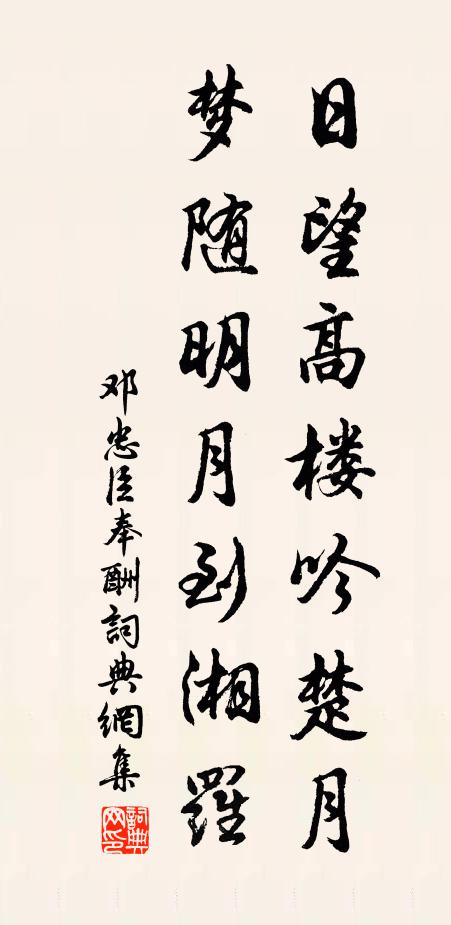 日望高楼吟楚月
梦随明月到湘羅
邓忠臣奉酬詞典網集
詞典网印